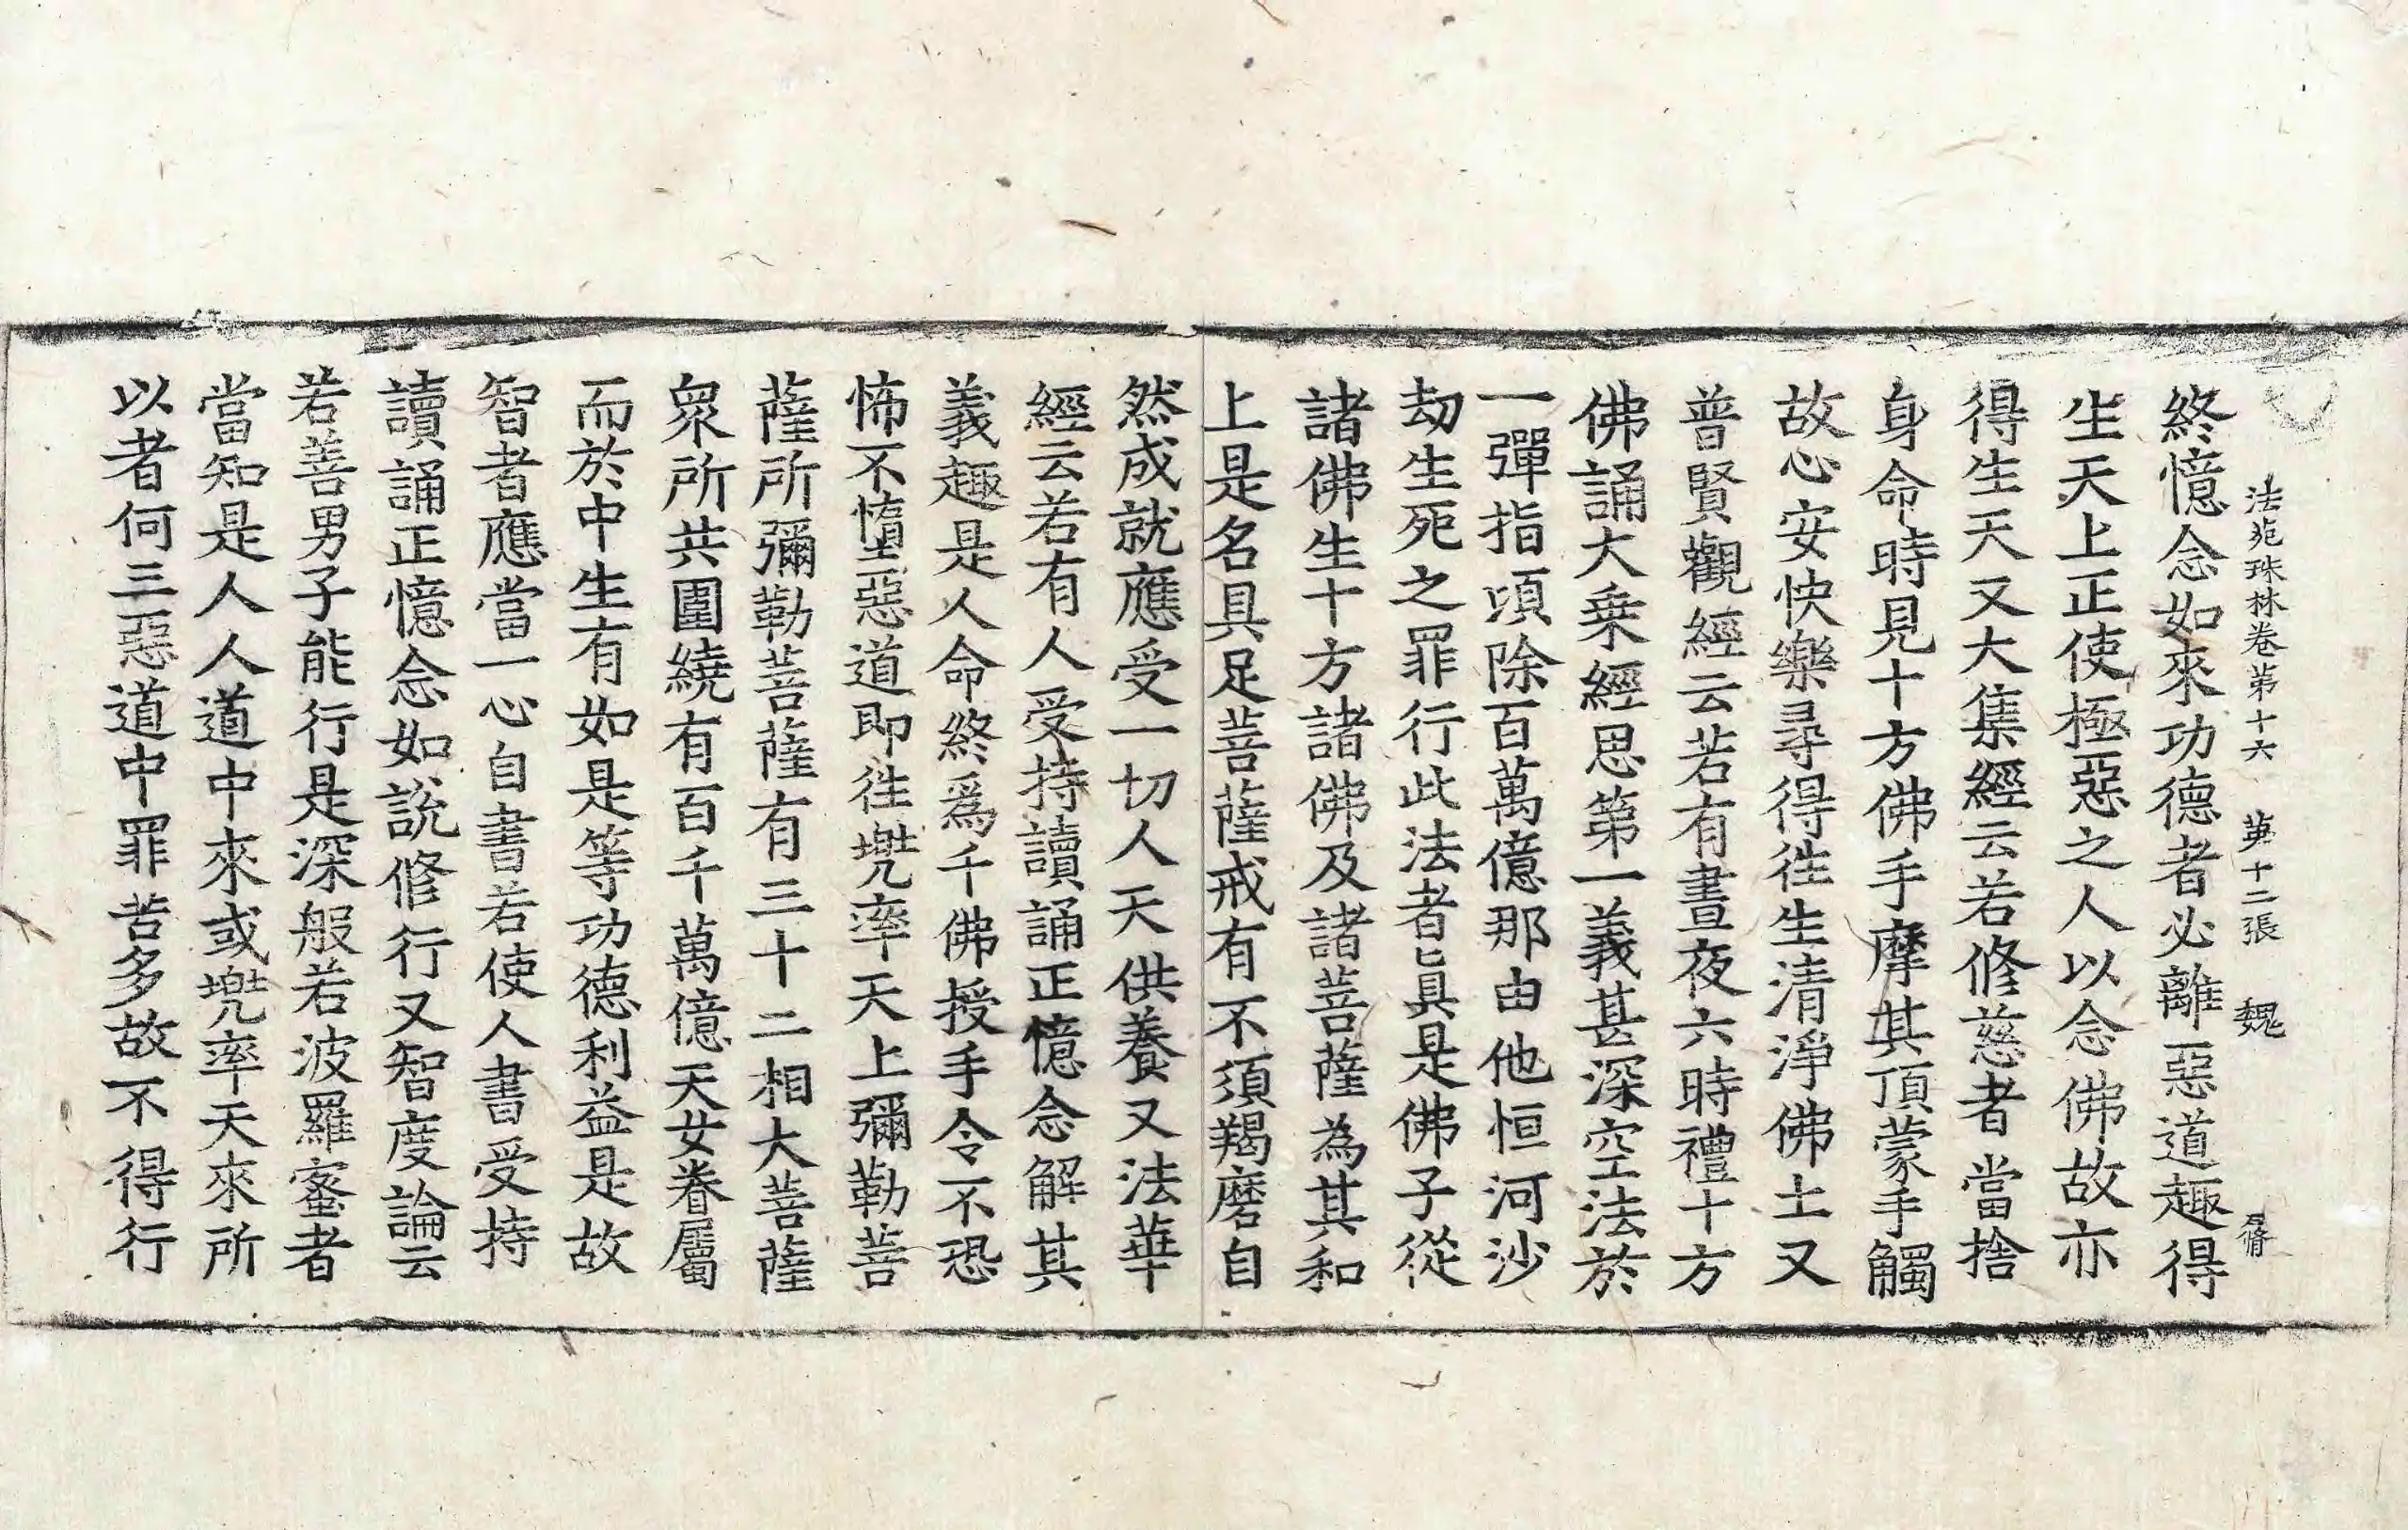 法苑珠林卷第十六 第十二張 魏
終憶念如來功德者必離惡道趣得
生天上正使極惡之人以念佛故亦
得生天又大集經云若修慈者當捨
身命時見十方佛手摩其頂蒙手觸
故心安快樂尋得往生清淨佛土又
普賢觀經云若有晝夜六時禮十方
佛誦大乘經思第一義甚深空法於
一彈指頃除百萬億那由他恒河沙
劫生死之罪行此法者真是佛子從
諸佛生十方諸佛及諸菩薩為其和
上是名具足菩薩戒有不須羯磨自
然成就應受一切人天供養又法華
經云若有人受持讀誦正憶念解其
義趣是人命終為千佛授手令不恐
怖不墮惡道即往兠率天上彌勒菩
薩所彌勒菩薩有三十二相大菩薩
衆所共圍繞有百千萬億天女眷屬
而於中生有如是等功德利益是故
智者應當一心自書若使人書受持
讀誦正憶念如說修行又智度論云
若善男子能行是深般若波羅蜜者
當知是人人道中來或兠率天來所
以者何三惡道中罪苦多故不得行